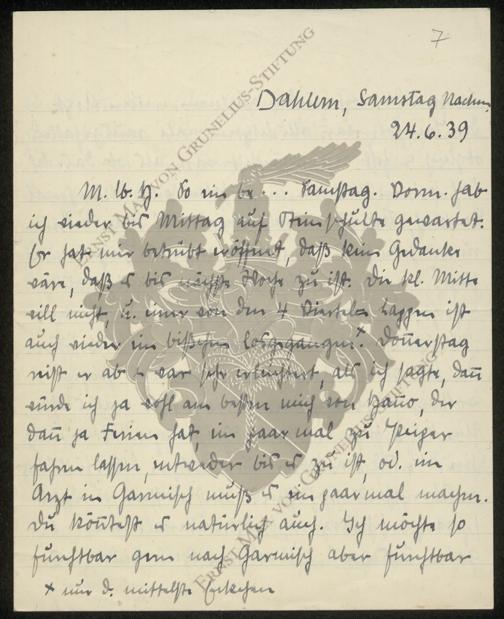 7
Dahlem, Samstag Nachm.
24.6.39
M. lb. H. So ein be... Samstag. Vorm. hab
ich wieder bis Mittag auf gewartet.
Er hat mir betrübt eröffnet, daß kein Gedanke
wäre, daß es bis nächste Woche zu ist. Die kl. Mitte
will nicht, u. einer von den 4 Viertels Lappen ist
auch wieder ein bißchen losgegangen.x Donnerstag
reist er ab u war sehr erleichtert, als ich sagte, dann
würde ich ja wohl am besten mich von Hanno, der
dann ja Ferien hat, ein paar mal zu
fahren lassen, entweder bis es zu ist, od. ein
Arzt in Garmisch muß es ein paar mal machen.
Du könntest es natürlich auch. Ich möchte so
furchtbar gern nach Garmisch aber furchtbar
x nur d. mittelste Eckchen
ERNST MAX VON GRUNELIUS-STIFTUNG
ERNST MAX VON GRUNELIUS-STIFTUNG